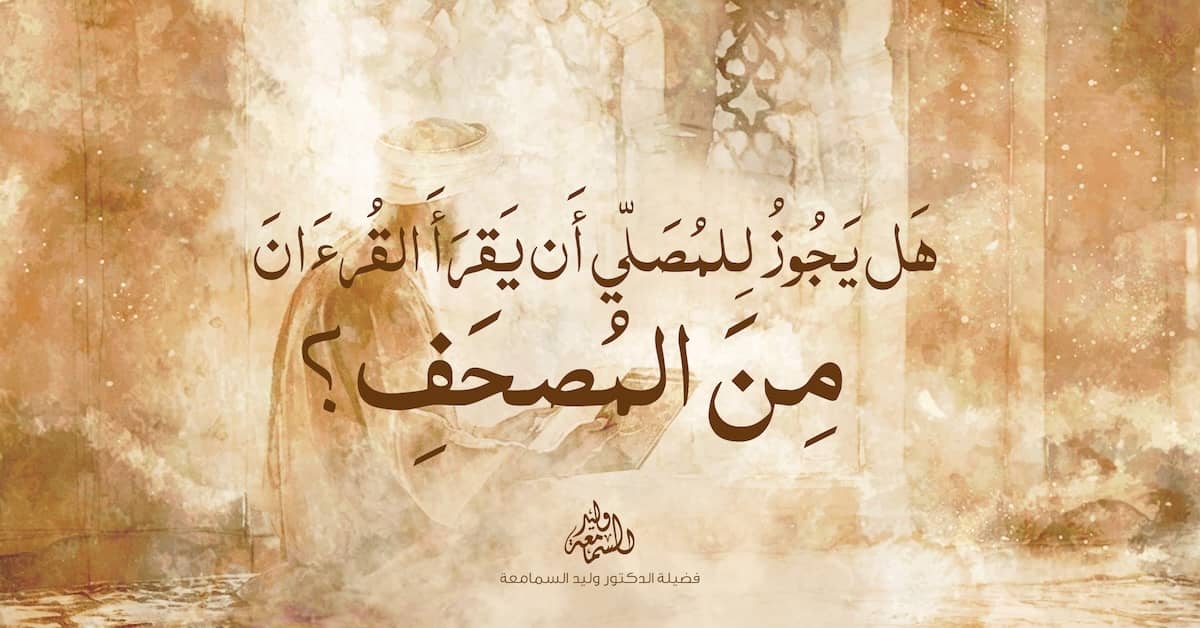 هَل يَجُوزُ لِلمُصَلِّي أَن يَقرَأَ القُرءَانَ
مِنَ المُصحَفِ؟
وليد السمامعة
فضيلة الدكتور وليد السمامعة